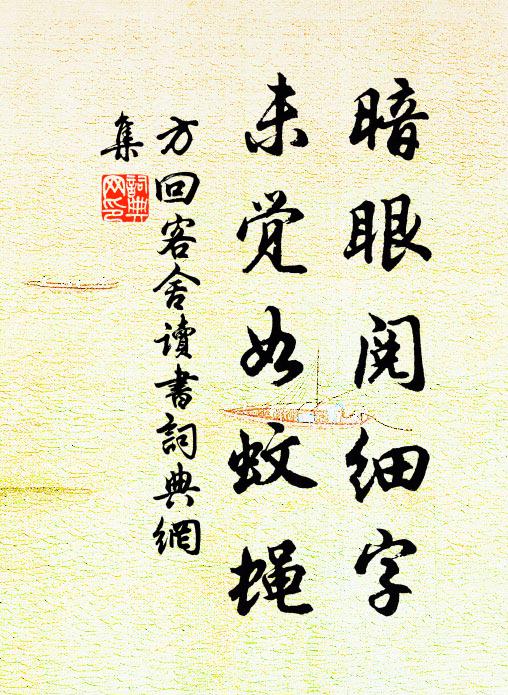 暗眼阅细字
未觉如蚊蝇
方回客舍讀書詞典網
集
詞典
网印